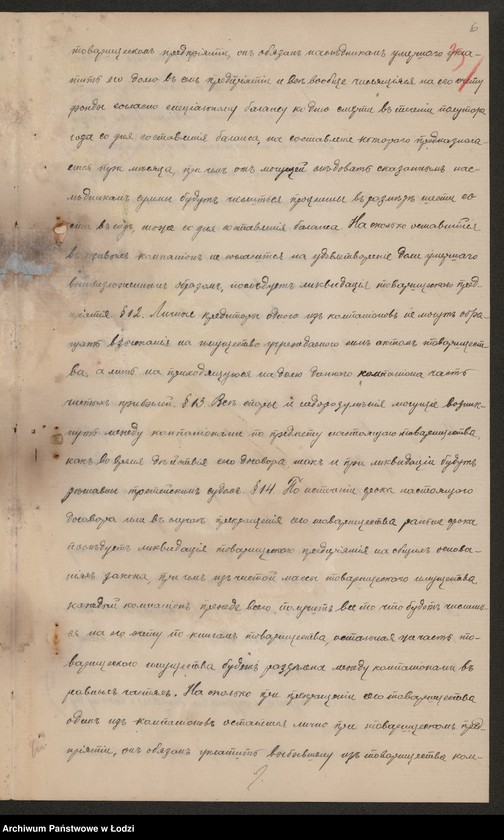 6
товарищескомъ предпріятіи, онъ обязанъ наслѣдникамъ умершаго упла-
тить его долю въ семъ предпріятіи и всѣ вообще числящіяся на его счету
фонды согласно спеціальному балансу ко дню смерти въ теченіи полутора
года со дня составленія баланса, на составленіе котораго предназнача-
ется мѣсяца, при чемъ отъ могущей слѣдовать сказаннымъ нас-
лѣдникамъ суммы будутъ числиться проценты въ размѣрѣ шести со
ста въ годъ, тоже со дня составленія баланса. На сколько оставшійся
въ живыхъ компаніонъ не согласится на удовлетвореніе доли умершаго
вышеизложеннымъ образомъ, послѣдуетъ ликвидація товарищескаго пред-
пріятія. §12. Личные кредиторы одного изъ компаніоновъ не могутъ обра-
щать взысканія на имущество учрежденнаго симъ актомъ товарищест-
ва, а лишь на приходящуюся на долю даннаго компаніона часть
чистыхъ прибылей. §13 Всѣ споры и недоразумѣнія могущіе возник-
нуть между компаніонами по предмету настоящаго товарищества,
какъ во время дѣйствія сего договора, такъ и при ликвидаціи будутъ
рѣшаемы третейскимъ судомъ. §14. По истеченіи срока настоящаго
договора или въ случаѣ прекращенія сего товарищества ранѣе срока
послѣдуетъ ликвидація товарищескаго предпріятія на общихъ основа-
ніяхъ закона, при чемъ изъ чистой массы товарищескаго имущества
каждый компаніонъ прежде всего получитъ все то что будетъ числить-
ся на его счету по книгамъ товарищества, остальная же часть то-
варищескаго имущества будетъ раздѣлена между компаніонами въ
равныхъ частяхъ. На сколько при прекращеніи сего товарищества
одинъ изъ компаніоновъ останется лично при товарищескомъ пред-
пріятіи, онъ обязанъ уплатить выбывшему изъ товарищества ком-
Archiwum Państwowe w Łodzi